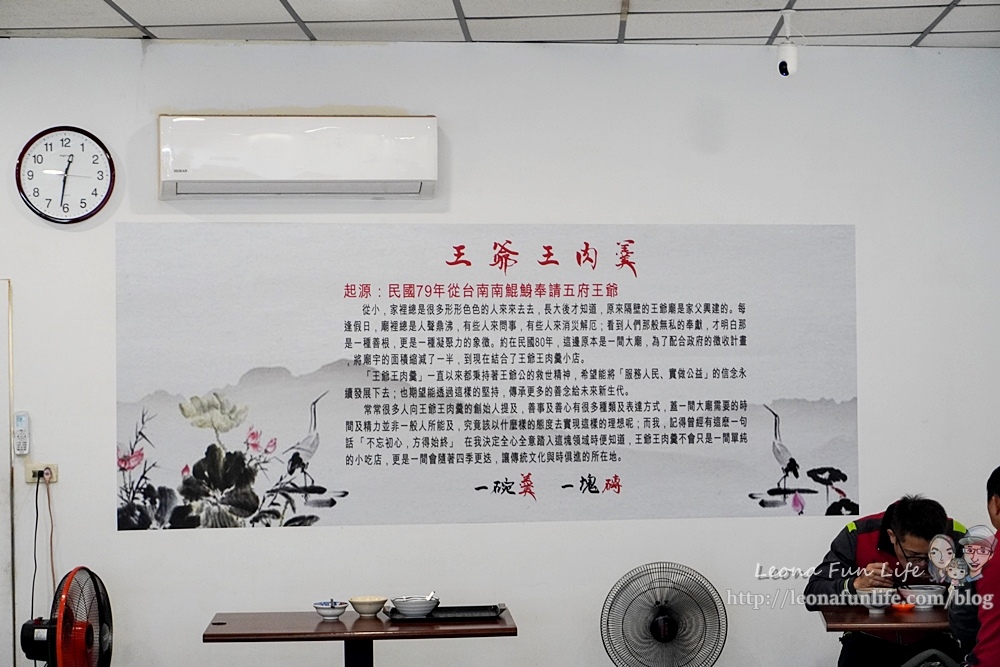 12
1
2
3
4
5
6
7
8
9
10
11
王爺王肉羹
起源：民國79年從台南南鯤鯓奉請五府王爺
從小，家裡總是很多形形色色的人來來去去，長大後才知道，原來隔壁的王爺廟是家父興建的。每
逢假日，廟裡總是人聲鼎沸，有些人來問事，有些人來消災解厄；看到人們那般無私的奉獻，才明白那
是一種善根，更是一種凝聚力的象徵。約在民國80年，這邊原本是一間大廟，為了配合政府的徵收計畫
，將廟宇的面積縮減了一半，到現在結合了王爺王肉羹小店。
「王爺王肉羹」一直以來都秉持著王爺公的救世精神，希望能將「服務人民、實做公益」的信念永
續發展下去；也期望能透過這樣的堅持，傳承更多的善念給未來新生代。
常常很多人向王爺王肉羹的創始人提及，善事及善心有很多種類及表達方式，蓋一間大廟需要的時
間及精力並非一般人所能及，究竟該以什麼樣的態度去實現這樣的理想呢；而我，記得曾經有這麼一句
話「不忘初心，方得始終」 在我決定全心全意踏入這塊領域時便知道，王爺王肉羹不會只是一間單純
的小吃店，更是一間會隨著四季更迭，讓傳統文化與時俱進的所在地。
一碗羹 一塊磚
Leona Fun Life
http://leonafunlife.com/blog